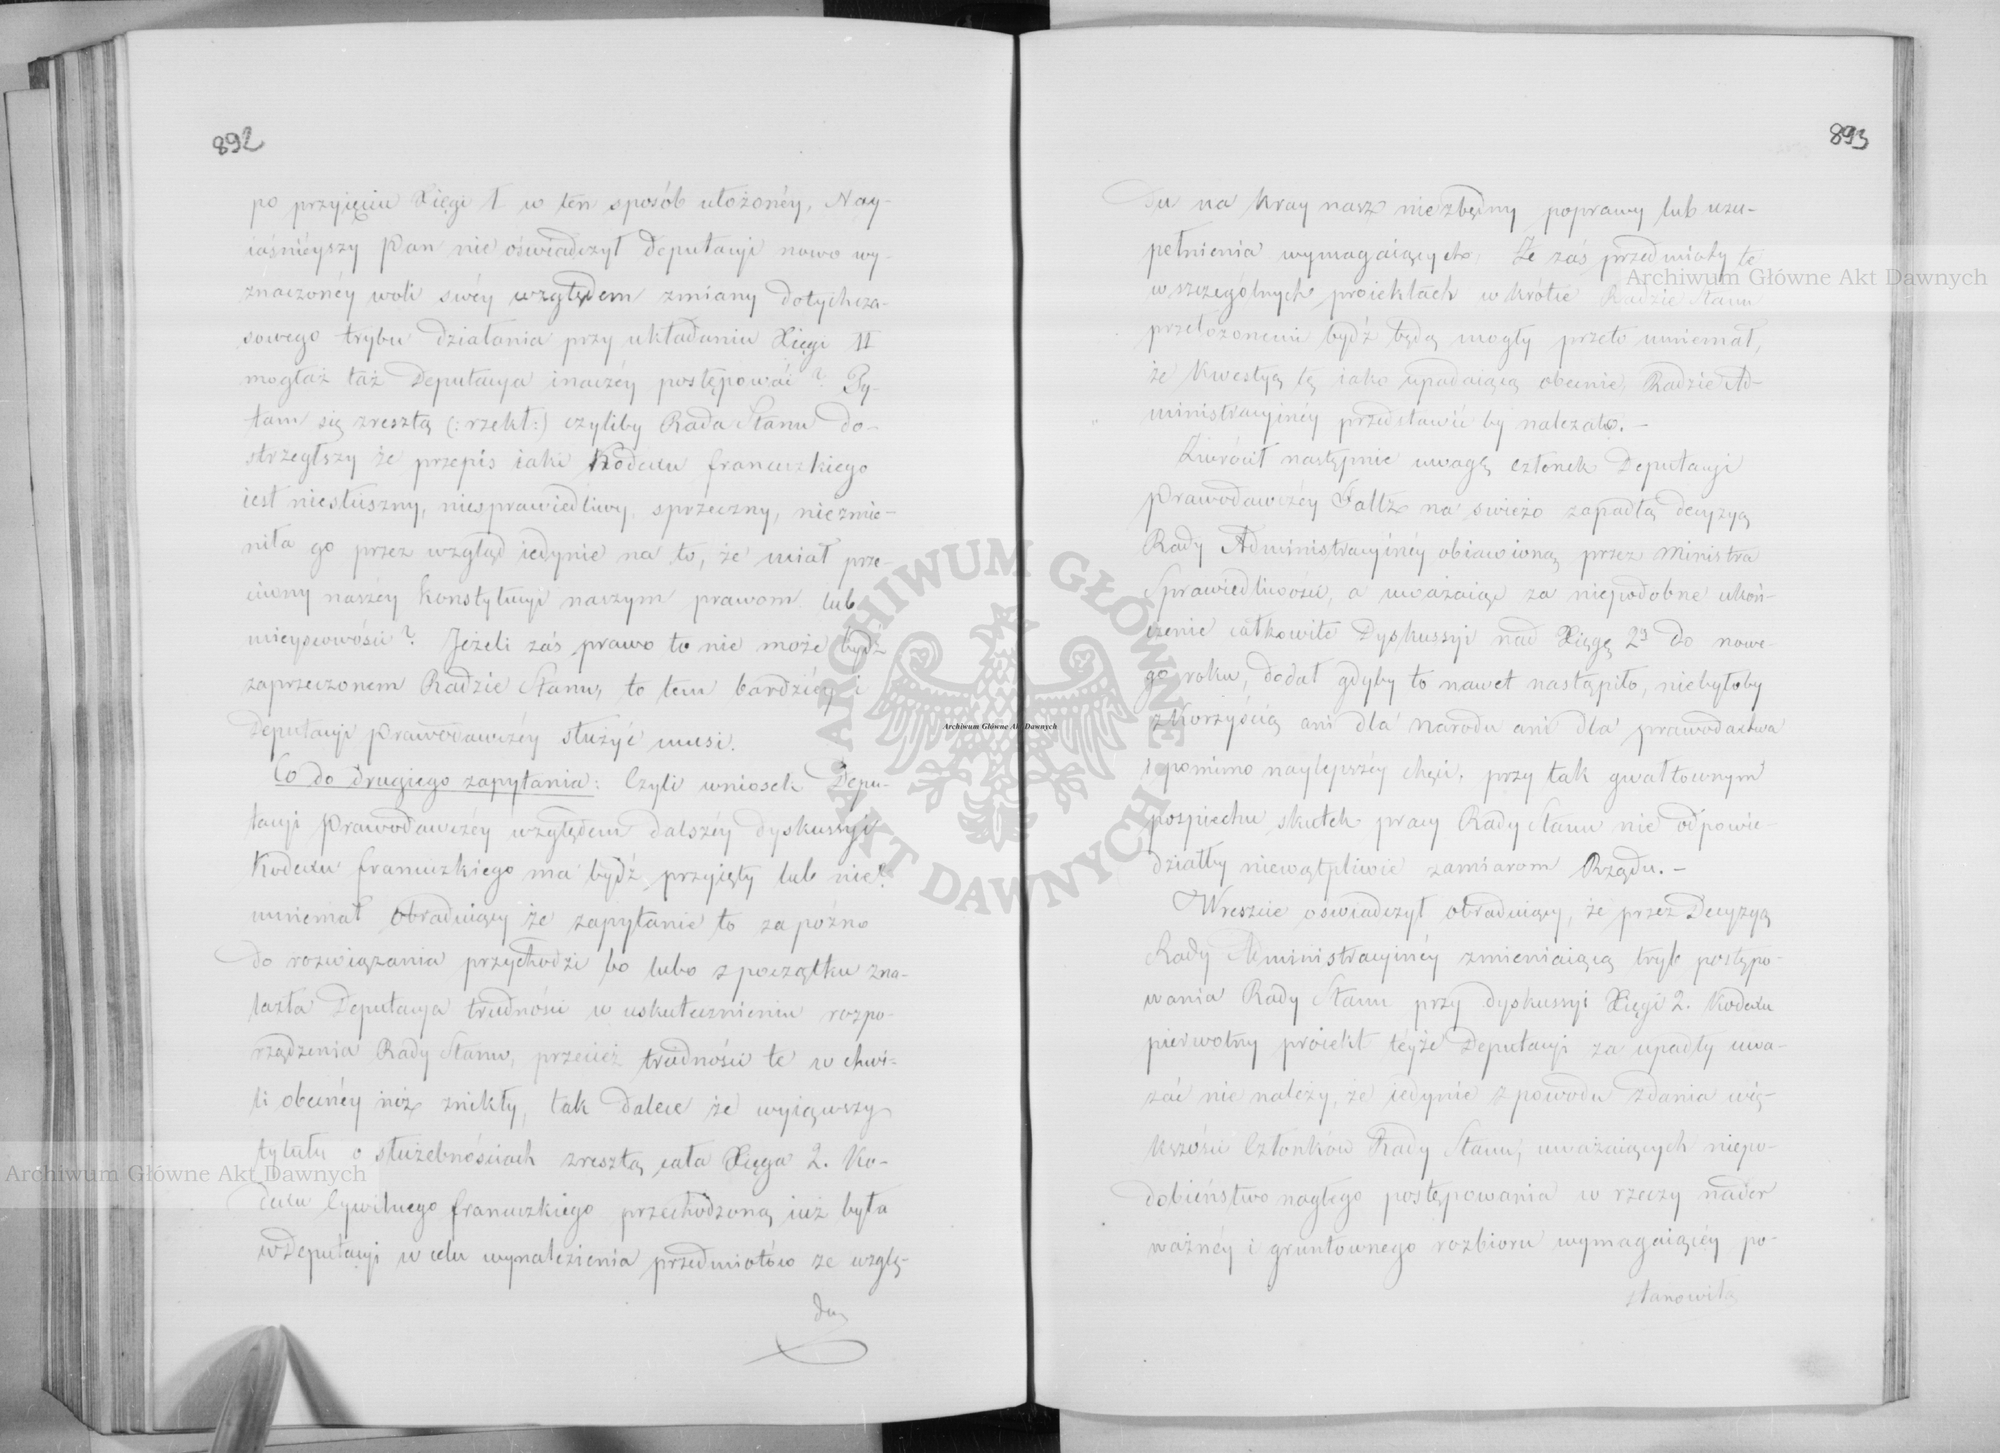 892
po przyięciu Xięgi 1 w ten sposób ułożonéy, Nay-
iaśnieyszy Pan nie oświadczył Deputacyi nowo wy-
znaczonéy woli swéy względem zmiany dotychcza-
sowego trybu działania przy układaniu Xięgi II
mogłaż taż Deputacya inaczéy postępować? Py-
tam się zresztą (: rzekł :) czyliby Rada Stanu do-
strzegłszy że przepis iaki Kodexu francuzkiego
iest niesłuszny, niesprawiedliwy, sprzeczny, niezmie-
niła go przez wzgląd iedynie na to, że miał prze-
ciwny naszéy Konstytucyi naszym prawom lub
mieyscowości? Jeżeli zaś prawo to nie może bydź
zaprzeczonem Radzie Stanu, to tem bardziéy i
Deputacyi Prawodawczéy służyć musi.
Co do drugiego zapytania: Czyli wniosek Depu-
tacyi Prawodawczéy względem dalszéy dyskussyi
Kodexu francuzkiego ma bydź przyięty lub nie?
mniemał obraduiący że zapytanie to za pózno
do rozwiązania przychodzi bo lubo z początku zna-
lazła Deputacya trudności w uskutecznieniu rozpo-
rządzenia Rady Stanu, przecież trudności te w chwi-
li obecnéy iuż znikły, tak dalece że wyiąwszy
tytułu o służebnościach zresztą cała Xięga 2. Ko-
dexu Cywilnego francuzkiego przechodzoną iuż była
w Deputacyi w celu wynalezienia przedmiotów ze wzglę-
du
893
du na Kray nasz niezbędny poprawy lub uzu-
pełnienia wymagaiących. Że zaś przedmioty te
w szczególnych proiektach w krótce Radzie Stanu
przełożonemi bydź będą mogły przeto mniemał,
że kwestyą tę iako upadaiącą obecnie Radzie Ad-
ministracyinéy przedstawić by należało. –
Zwrócił następnie uwagę członek Deputacyi
Prawodawczéy Faltz na świeżo zapadłą decyzyą
Rady Administracyinéy obiawioną przez Ministra
Sprawiedliwości, a uważaiąc za niepodobne ukoń-
czenie całkowite Dyskussyi nad Xięgą 2ą do nowe-
go roku, dodał gdyby to nawet nastąpiło, niebyłoby
z korzyścią ani dla narodu ani dla prawodastwa
i pomimo naylepszéy chęci, przy tak gwałtownym
pospiechu skutek pracy Rady Stanu nie odpowie-
działby niewątpliwie zamiarom Rządu. –
Wreszcie oswiadczył obraduiący, że przez Decyzyą
Rady Administracyinéy zmieniaiącą tryb postępo-
wania Rady Stanu przy dyskussyi Xięgi 2. Kodexu
pierwotny proiekt teyże Deputacyi za upadły uwa-
żać nie należy, że iedynie z powodu zdania wię-
kszości Członków Rady Stanu, uważaiących niepo-
dobieństwo nagłego postępowania w rzeczy nader
ważnéy i gruntownego rozbioru wymagaiącéy po-
stanowiła
Archiwum Główne Akt Dawnych
Archiwum Główne Akt Dawnych
Archiwum Główne Akt Dawnych
ARCHIWUM GŁÓWNE AKT DAWNYCH